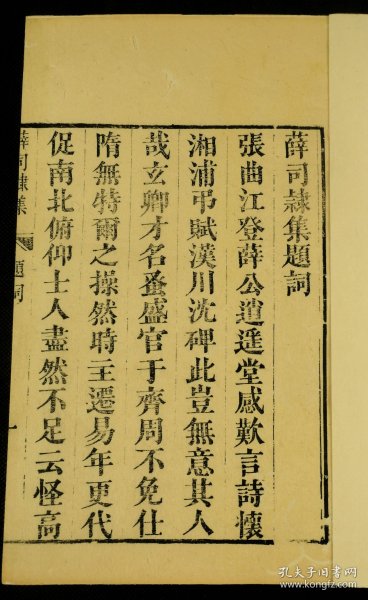 薛司隷集題詞
張曲江登薛公逍遥堂感歎言詩懷
湘浦弔賦漢川沈碑此豈無意其人
哉玄卿才名蚤盛官于齊周不免仕
隋無特爾之操然時王遷易年更代
促南北俯仰士人盡然不足云怪高
薛司隷集
題詞
一
孔夫子旧书网